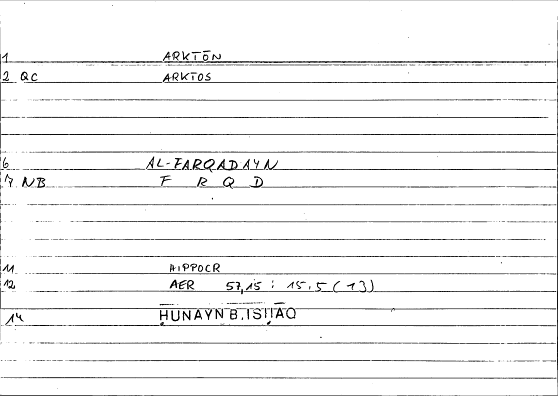 1 ARKTŌN
2 QC ARKTOS
6 AL-FARQADAYN
7 NB F R Q D
11 HIPPOCR
12 AER 57,15 : 15.5 (13)
14 ḤUNAYN B. ISḤĀQ